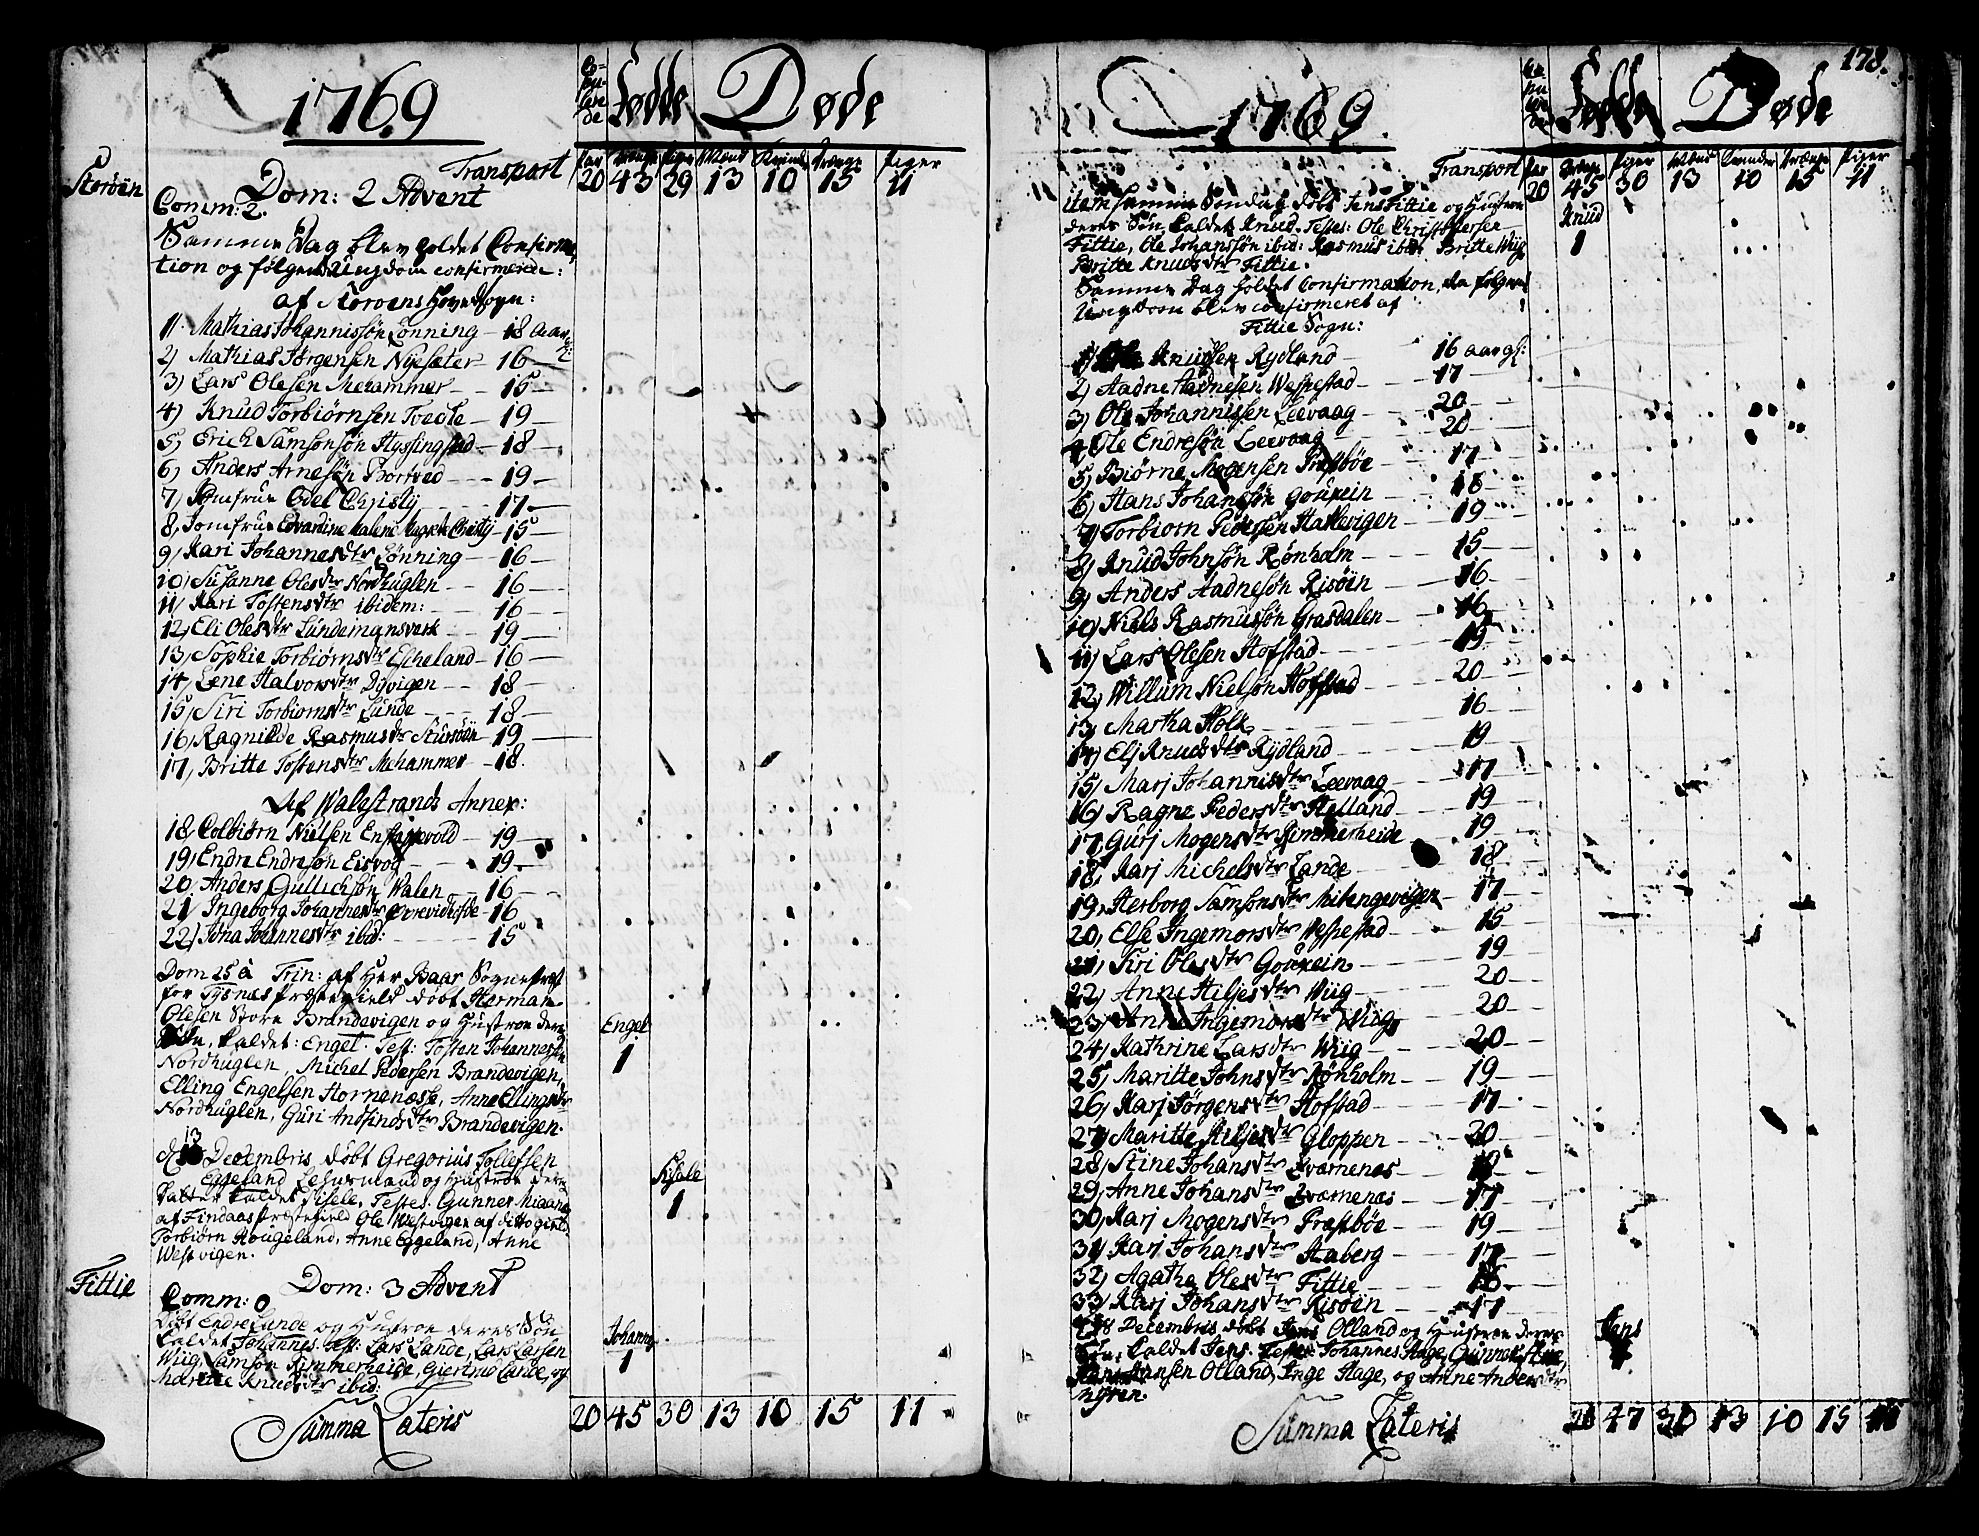 1769
Co-
pu-
lere-
de
Fødde
Døde
Storöen
Transport
Par Drenge Piger Mænd Kvinder Drenge Piger
20 43 29 13 10 15 11
Dom: 2 Advent
Comm: 2.
Samme Dag blev holdet Confirma-
tion og følgende Ungdom confirmerede:
af Störöens Hovedsogn:
1) Mathias Johannissön Lönning - 18 aar
2) Mathias Jörgensen Nysæter - 16
3) Lars Olesen Mehammer - 15
4) Knud Torbiörnsen Tvedte - 19
5) Erich Samsonsön Hyssingstad - 18
6) Anders Arnesön Bortved - 19
7) Jomfrue Edel Christj - 17
8) Jomfrue Edvardine Malene Magrete Christj - 15
9) Kari Johannesdtr Lönning - 16
10) Susanne Olesdtr Nordhuglen - 16
11) Kari Tostensdtr ibidem: - 16
12) Eli Olesdtr Lundemansverk - 19
13) Sophie Torbiörnsdtr Escheland - 16
14) Lene Halvorsdtr Dÿvigen - 18
15) Siri Torbiornsdtr Lunde - 18
16) Ragnilde Rasmusdtr Stursöen - 19
17) Britte Tostensdtr Mehammer - 18
Af Walgstrands Annex:
18) Colbiörn Nielsen Engesevold - 19
19) Endre Endresön Eisvog - 19
20) Anders Gullichsön Walen - 16
21) Ingeborg Johannesdtr - 16
22) Johannesdtr ibid: - 15
Dom 25 à Trin: af Her Baar Sognepræst
for Tysnæs Præstegield döbt Herman
Olesen Store Brandevigen og Hustroe deres
Sön, kaldet: Engel. Test: Tosten Johannesen
Nordhuglen, Michel Pedersen Brandevigen,
Elling Engelsen Hornenæse, Anne Ellingsdtr
Nordhuglen, Guri Anfindsdtr Brandevigen.
Engel
1
13
d: Decembris döbt Gregorius Tollefsen
Eggeland Lehnsmand og Hustroe deres
Datter kaldet Sisele, Testes: Gunner
af Findaas Præstegield Ole Westvigen af ditto gield
Torbiörn Hougeland, Anne Eggeland, Anne
Westvigen.
Sisele
1
Fittie
Dom: 3 Advent
Comm: 0
Döbt Endre Lunde og Hustroe deres Sön
kaldet Johannes. Test: Lars Lande, Lars Larsen
Wiig, Samson Rimmerheide, Giertrud Lande, og
Maritte Knudsdtr ibid:
Johannes
1
Summa Lateris
20 45 30 13 10 15 11
178.
1769
Fødde
Døde
Transport
Par Drenge Piger Mænd Kvinder Drenge Piger
20 45 30 13 10 15 11
item samme Söndag döbt Jens Fittie og Hustroe
deres Sön kaldet Knud. Testes: Ole Christophersen
Fittie, Ole Johanssön ibid: Rasmus ibid Britte Wiig
Britte Knudsdtr Fittie.
Knud
1
Samme Dag holdet Confirmation, da følgende
Ungdom blev confirmeret af
Fittie Sogn:
1) Ole Knudsen Rydland - 16 aar gl:
2) Aadne Aadnesen Wespestad - 17
3) Ole Johannissen Leevaag - 20
4) Ole Endresön Leevaag - 20
5) Biörne Mogensen Præstbøe - 17
6) Hans Johansön Gouxein - 18
7) Torbiorn Pedersen Hatlevigen - 19
8) Knud Johnsön Rönholm - 15
9) Anders Aadnesön Risöen - 16
10) Niels Rasmussön Grasdalen - 16
11) Lars Olesen Hofstad - 19
12) Willum Nielsön Hofstad - 20
13) Martha Holk - 16
14) Elj Knudsdtr Rydland - 19
15) Marj Johannisdtr Leevaag - 17
16) Ragne Pedersdtr Helland - 19
17) Gurj Mogensdtr Rimmerheide - 19
18) Karj Michelsdtr Lande - 18
19) Herborg Samsonsdtr Mitengevigen - 17
20) Else Ingemorsdtr Wespestad - 15
21) Siri Olesdtr Gouxein - 19
22) Anne Hiljesdtr Wiig - 20
23) Anne Ingemorsdtr Wiig - 20
24) Kathrine Larsdtr Wiig - 20
25) Maritte Johnsdtr Rönholm - 19
26) Karj Jörgensdtr Hofstad - 17
27) Maritte Hiljesdtr Gloppen - 20
28) Stine Johansdtr Sværnenæs - 19
29) Anne Johansdtr Sværnenæs - 17
30) Karj Mogensdtr Præstbøe - 19
31) Karj Johansdtr Aaberg - 17
32) Agatha Olesdtr Fittie - 16
33) Karj Johansdtr Risöen - 17
d: 18 Decembris döbt Jens Olland og Hustroe deres
Sön, kaldet Jens. Testes Johannes Hage, Gunner
Hansen Olland, Inge Hage, og Anne Andersdtr
Jens
1
Summa Lateris
20 47 30 13 10 15 11